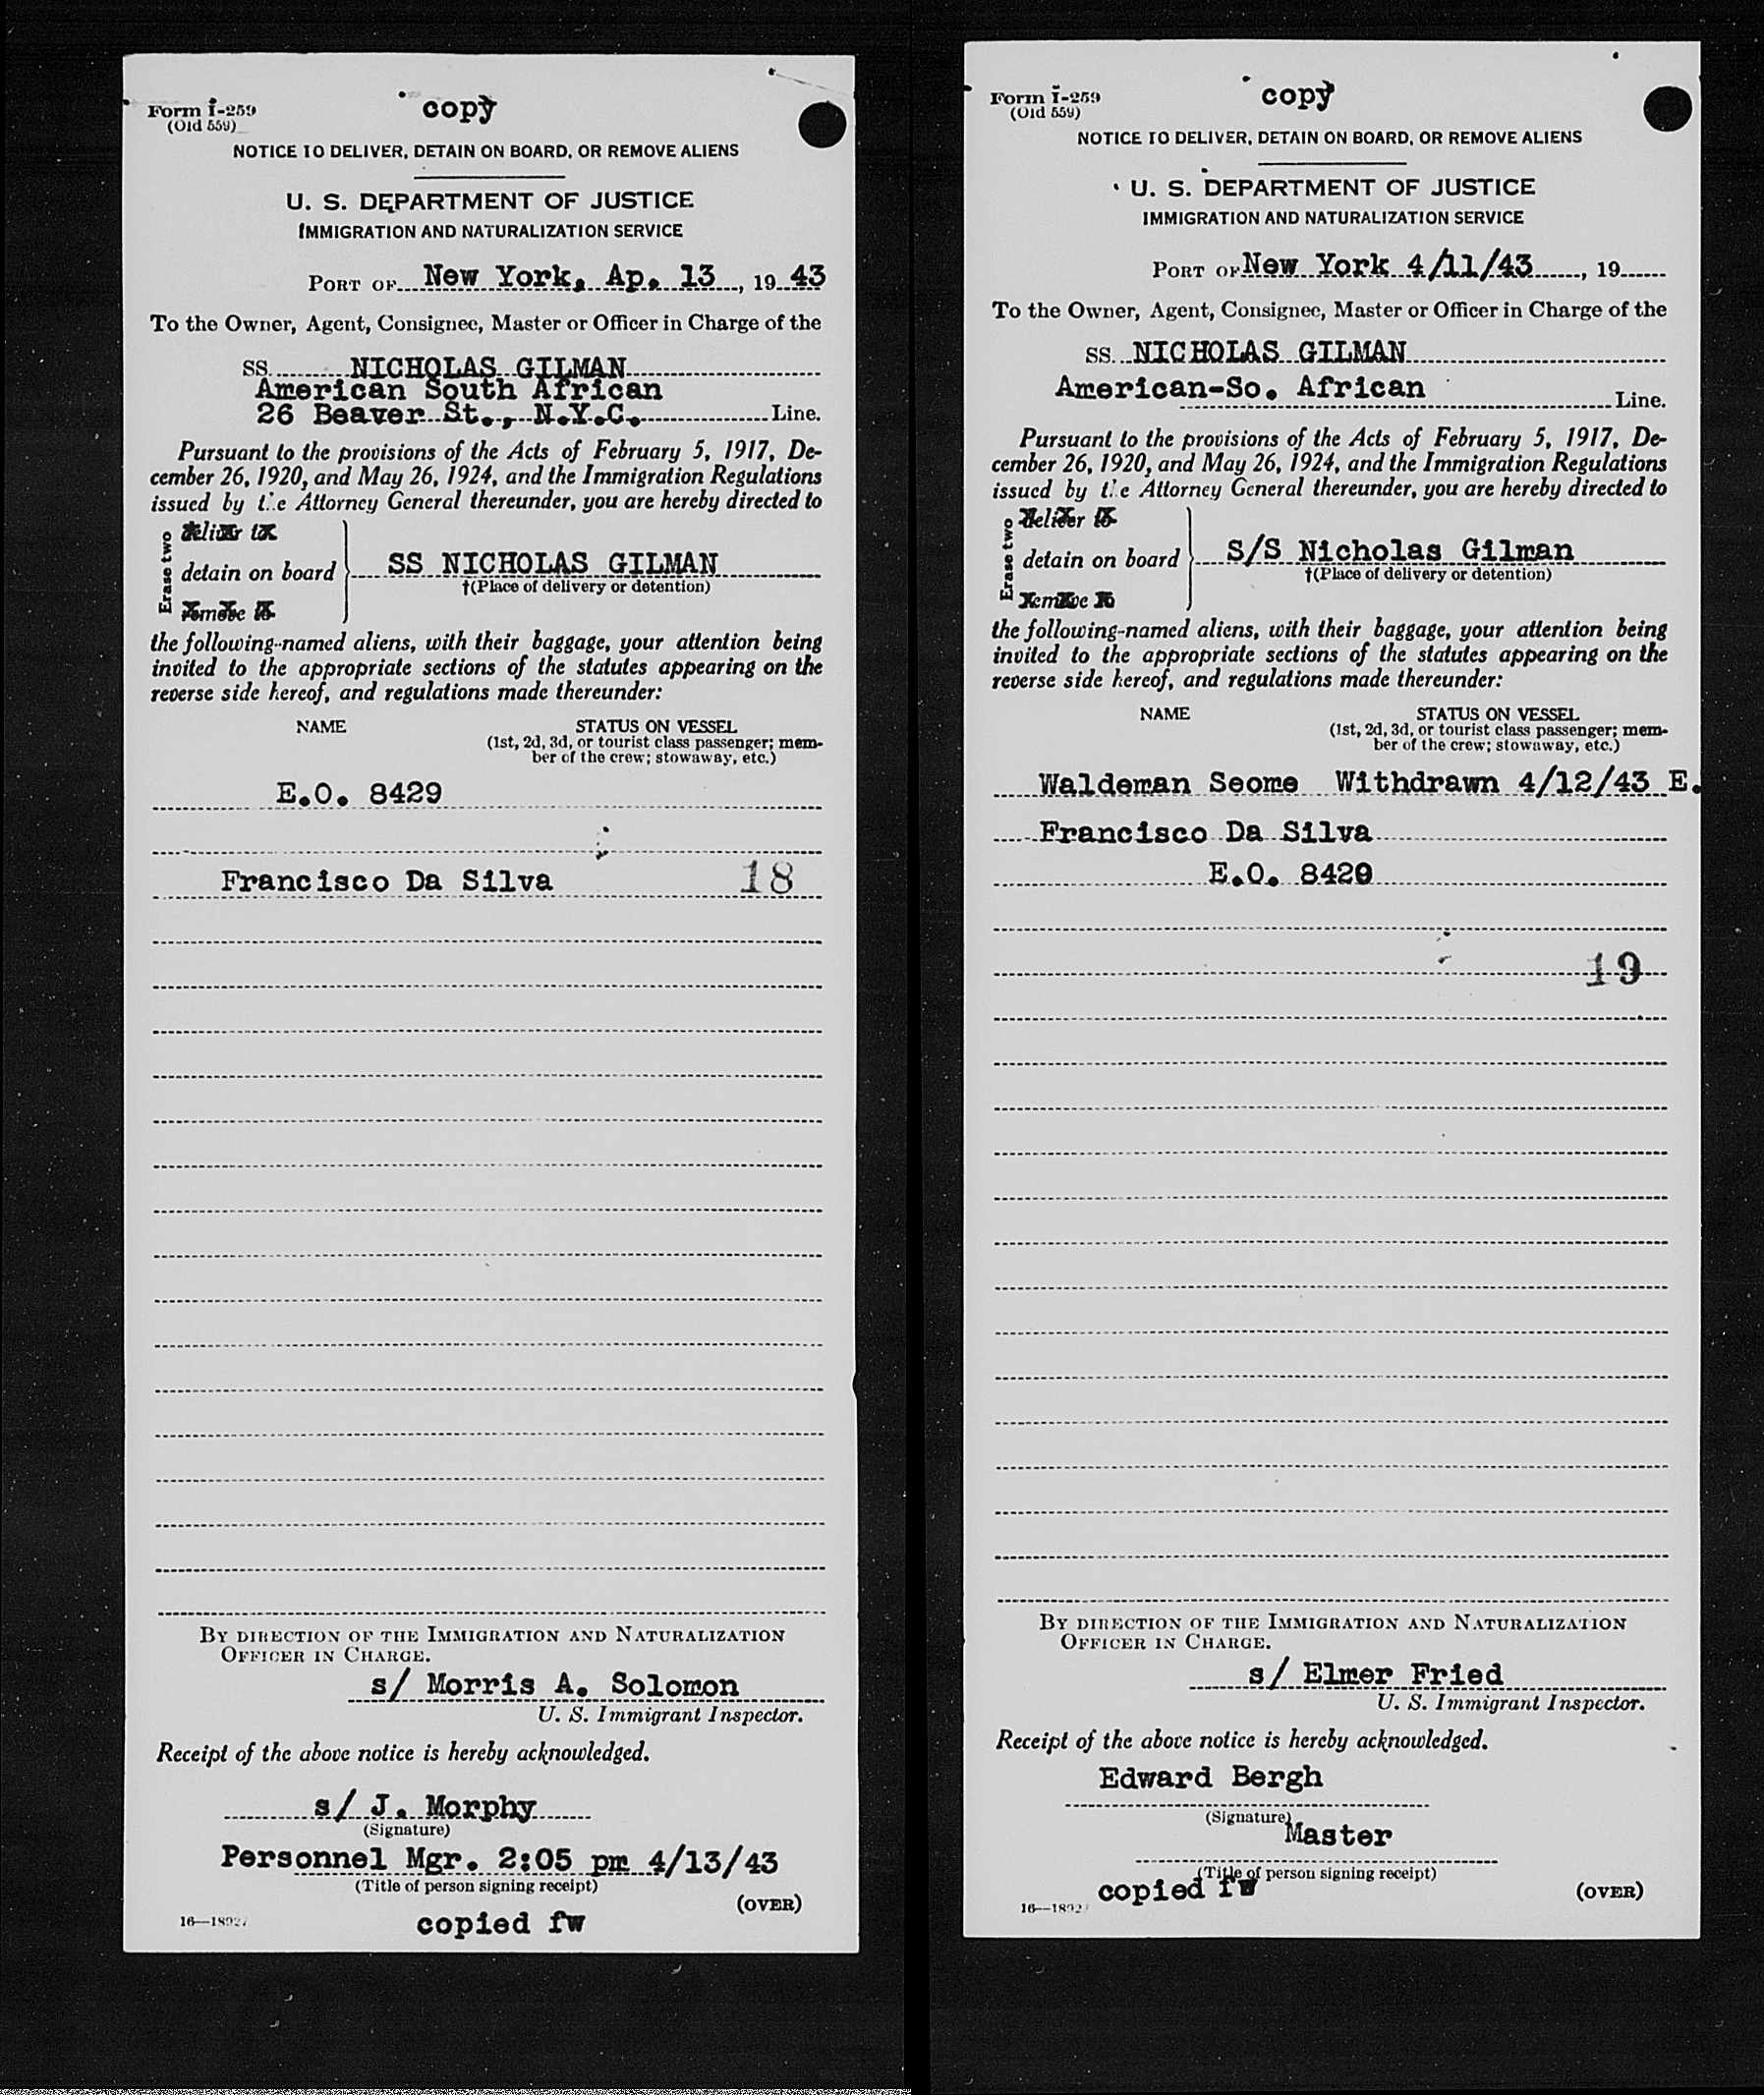 Form I-259
(Old 559)
copy
NOTICE TO DELIVER, DETAIN ON BOARD, OR REMOVE ALIENS
U. S. DEPARTMENT OF JUSTICE
IMMIGRATION AND NATURALIZATION SERVICE
PORT OF New York, Ap. 13, 19 43
To the Owner, Agent, Consignee, Master or Officer in Charge of the
SS. NICHOLAS GILMAN
American South African
26 Beaver St., N.Y.C. Line.
Pursuant to the provisions of the Acts of February 5, 1917, De-
cember 26, 1920, and May 26, 1924, and the Immigration Regulations
issued by the Attorney General thereunder, you are hereby directed to
Erase two
deliver to
detain on board SS NICHOLAS GILMAN
†(Place of delivery or detention)
remove to
the following-named aliens, with their baggage, your attention being
invited to the appropriate sections of the statutes appearing on the
reverse side hereof, and regulations made thereunder:
NAME STATUS ON VESSEL
(1st, 2d, 3d, or tourist class passenger; mem-
ber of the crew; stowaway, etc.)
E.O. 8429
Francisco Da Silva 18
BY DIRECTION OF THE IMMIGRATION AND NATURALIZATION
OFFICER IN CHARGE.
s/ Morris A. Solomon
U. S. Immigrant Inspector.
Receipt of the above notice is hereby acknowledged.
s/ J. Morphy
(Signature)
Personnel Mgr. 2:05 pm 4/13/43
(Title of person signing receipt)
(OVER)
copied fw
Form I-259
(Old 559)
copy
NOTICE TO DELIVER, DETAIN ON BOARD, OR REMOVE ALIENS
U. S. DEPARTMENT OF JUSTICE
IMMIGRATION AND NATURALIZATION SERVICE
PORT OF New York 4/11/43, 19
To the Owner, Agent, Consignee, Master or Officer in Charge of the
SS. NICHOLAS GILMAN
American-So. African Line.
Pursuant to the provisions of the Acts of February 5, 1917, De-
cember 26, 1920, and May 26, 1924, and the Immigration Regulations
issued by the Attorney General thereunder, you are hereby directed to
Erase two
deliver to
detain on board S/S Nicholas Gilman
†(Place of delivery or detention)
remove to
the following-named aliens, with their baggage, your attention being
invited to the appropriate sections of the statutes appearing on the
reverse side hereof, and regulations made thereunder:
NAME STATUS ON VESSEL
(1st, 2d, 3d, or tourist class passenger; mem-
ber of the crew; stowaway, etc.)
Waldeman Seome Withdrawn 4/12/43 E.
Francisco Da Silva
E.O. 8429
19
BY DIRECTION OF THE IMMIGRATION AND NATURALIZATION
OFFICER IN CHARGE.
s/ Elmer Fried
U. S. Immigrant Inspector.
Receipt of the above notice is hereby acknowledged.
Edward Bergh
(Signature)
Master
(Title of person signing receipt)
copied fw
(OVER)